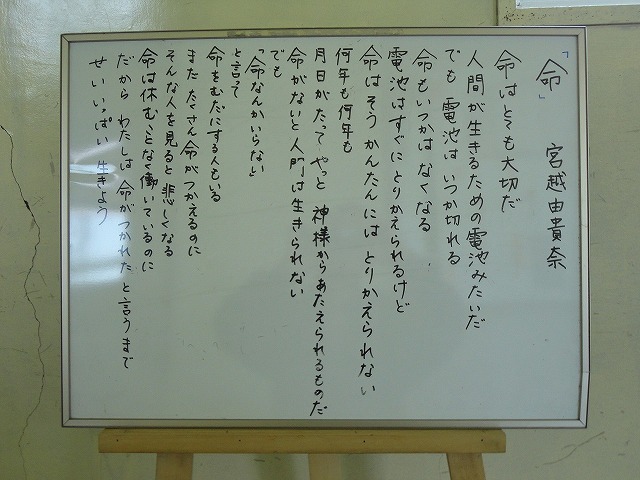 「命」　宮越由貴奈
命はとても大切だ
人間が生きるための電池みたいだ
でも 電池は いつか切れる
命もいつかは なくなる
電池はすぐにとりかえられるけど
命はそう かんたんには とりかえられない
何年も何年も
月日がたって やっと 神様からあたえられるものだ
命がないと人間は生きられない
でも
「命なんかいらない」
と言って
命をむだにする人もいる
まだ たくさん命がつかえるのに
そんな人を見ると悲しくなる
命は休むことなく働いているのに
だから わたしは 命がつかれたと言うまで
せいいっぱい 生きよう